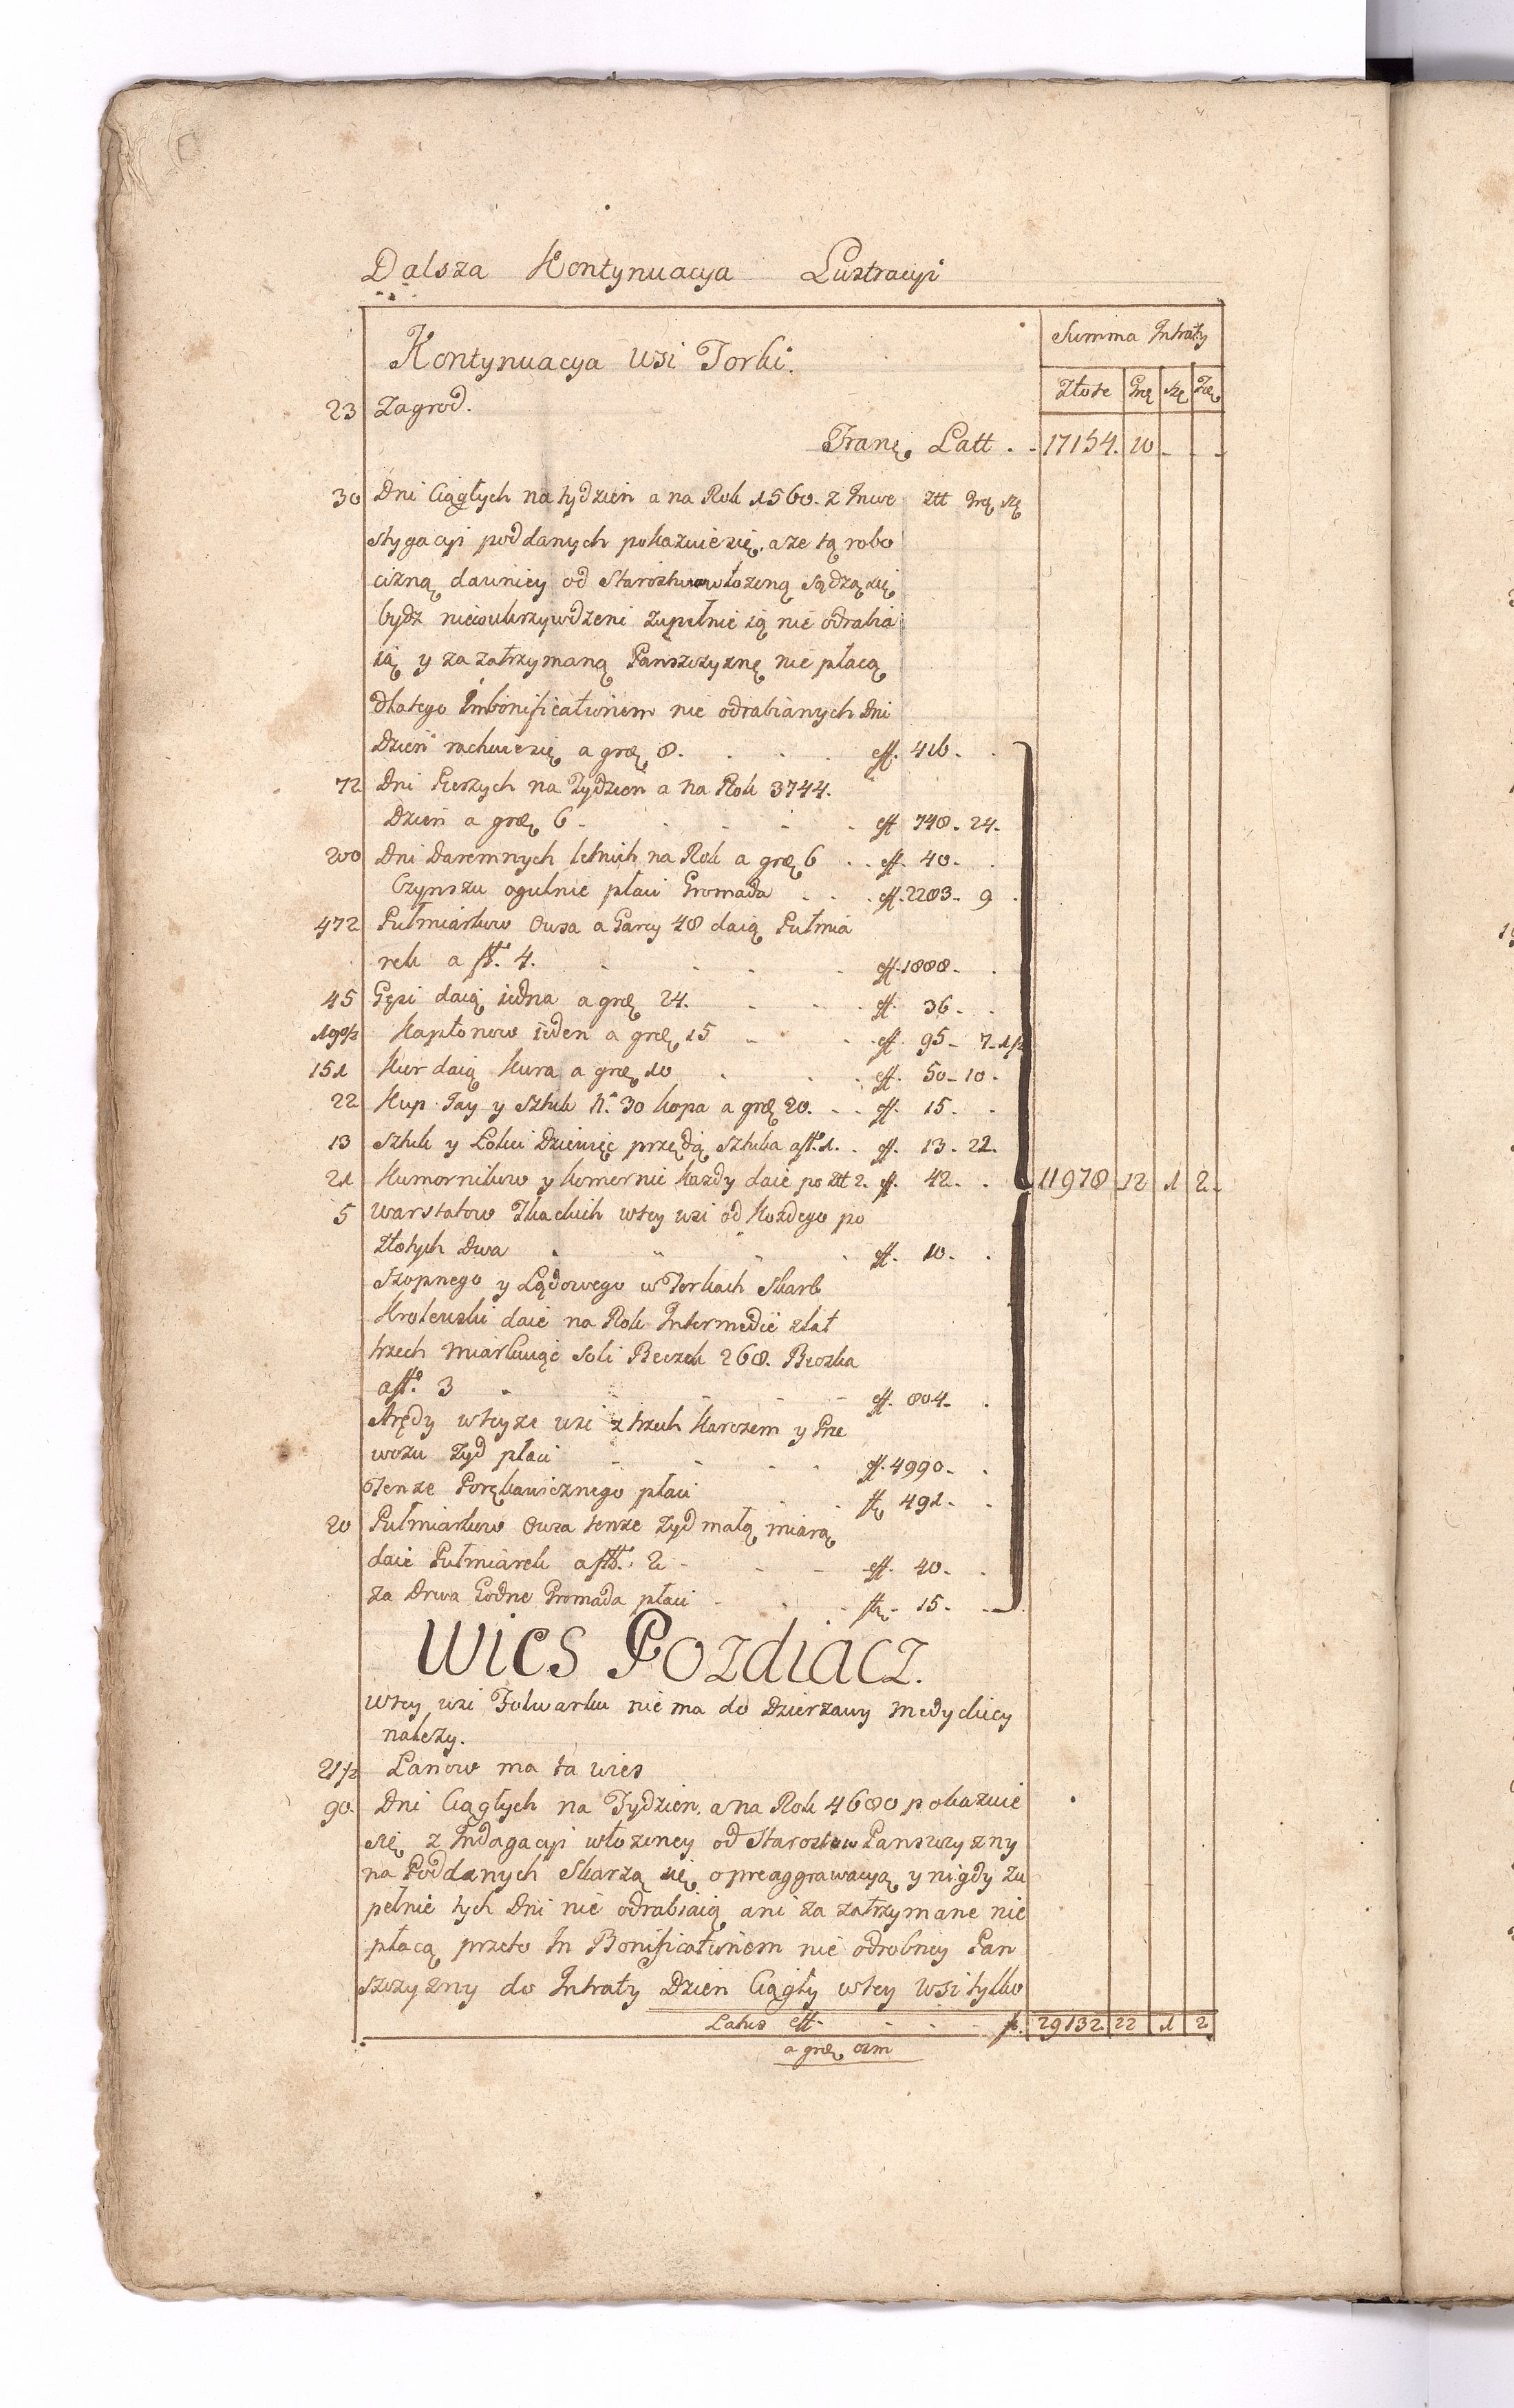 Dalsza Kontynuacya Lustracyi
Summa Intraty
Kontynuacya Wsi Torki.
Złote Grꝫ Szꝫ
23 Zagrod.
Latt . . 17154. 10 - - -
30 Dni Ciągłych na tydzien a na Rok 1560. z Inwe ztt Grꝫ Szꝫ
stygacyi poddanych pokazuie się, aze tą robo
cizną dawniey od Starostwa włozoną sądzą się
bydz nieco ukrzywdzeni zupełnie ią nie odrabia
ią y za zatrzymaną Panszczyznę nie płacą
dlatego Inbonificationem nie odrabianych Dni
Dzien rachuie się a grꝫ 8. . . . ff. 416. .
72 Dni Pieszych na Tydzien a na Rok 3744.
Dzien a grꝫ 6 - . . - - . ff 748. 24.
200 Dni Daremnych letnich na Rok a grꝫ 6 . . ff. 40. .
Czynszu ogulnie płaci Gromada . . . ff. 2283. 9 .
472 Pułmiarkow Owsa a Garcy 48 daią Pułmia
rek a ff. 4. . - - . ff. 1888. .
45 Gęsi daią iedna a grꝫ 24. . . . ff. 36. .
190½ Kapłonow ieden a grꝫ 15 . . . ff. 95. 7. 1/2
151 Kur daią Kura a grꝫ 10 . . . ff. 50. 10.
22 Kup Jay y Sztuk N. 30 kopa a grꝫ 20. . . ff. 15. .
13 Sztuk y Lokci Dziewięc przędą Sztuka a ff. 1. . ff. 13. 22.
21 Kumornikow y Komornic Kazdy daie po Ztt 2. ff. 42. . 11978 12 1 2.
5 Warstatow Tkackich wtey wsi od Kozdego po
Złotych Dwa . . . . ff. 10. .
Szopnego y Lądowego w Torkach Skarb
Krolewski daie na Rok Intermedie z lat
trzech miarkuiąc Soli Beczek 268. Beczka
a ff. 3 . - - - ff. 804. .
Arędy wteyze wsi z trzech Karczem y Prze
wozu Zyd płaci - - . . ff. 4990. .
Tenze Porękawicznego płaci . . ff. 491. .
20 Pułmiarkow Owsa tenze Zyd małą miarą
daie Pułmiarek a ff. 2 - - - ff. 40. .
za Drwa Godne Gromada płaci - . . ff. 15. -
Wies Pozdiacz.
Wtey wsi Folwarku nie ma do Dzierzawy Medyckiey
nalezy.
21½ Lanow ma ta wies
90. Dni Ciągłych na Tydzien, a na Rok 4680 pokazuie
się z Indagacyi włozoney od Starostow Panszczyzny
na Poddanych Skarzą się o preaggrawacyą y nigdy zu
pełnie tych Dni nie odrabiaią ani za zatrzymane nie
płacą przeto In Bonificationem nie odrobney Pan
szczyzny do Intraty Dzien Ciągły wtey wsi tylko
Latus ff. - . . - 29132 22 1 2
a grꝫ osm